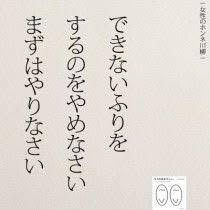 ｜女性のホンネ川柳｜
できないふりを
するのをやめなさい
まずはやりなさい